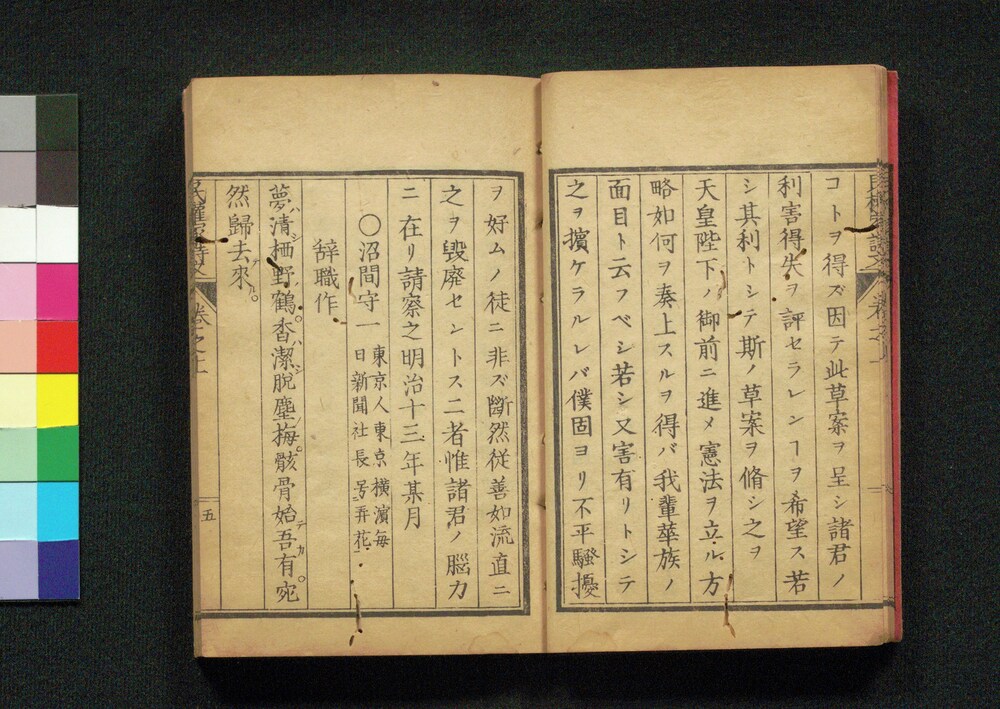 コトヲ得ズ因テ此草案ヲ呈シ諸君ノ
利害得失ヲ評セラレンヿヲ希望ス若
シ其利トシテ斯ノ草案ヲ脩シ之ヲ
天皇陛下ノ御前ニ進メ憲法ヲ立ルノ方
略如何ヲ奏上スルヲ得バ我輩華族ノ
面目ト云フベシ若シ又害有リトシテ
之ヲ擯ケラルレバ僕固ヨリ不平騷擾
ヲ好ムノ徒ニ非ズ斷然従善如流直ニ
之ヲ毀廃セントス二者惟諸君ノ腦力
ニ在リ請察之明治十三年某月
〇沼間守一 東京人東京橫濱毎
日新聞社長号弄花
辞職作
夢清栖野鶴杳潔脫塵梅骸骨始吾有宛
然歸去來
五